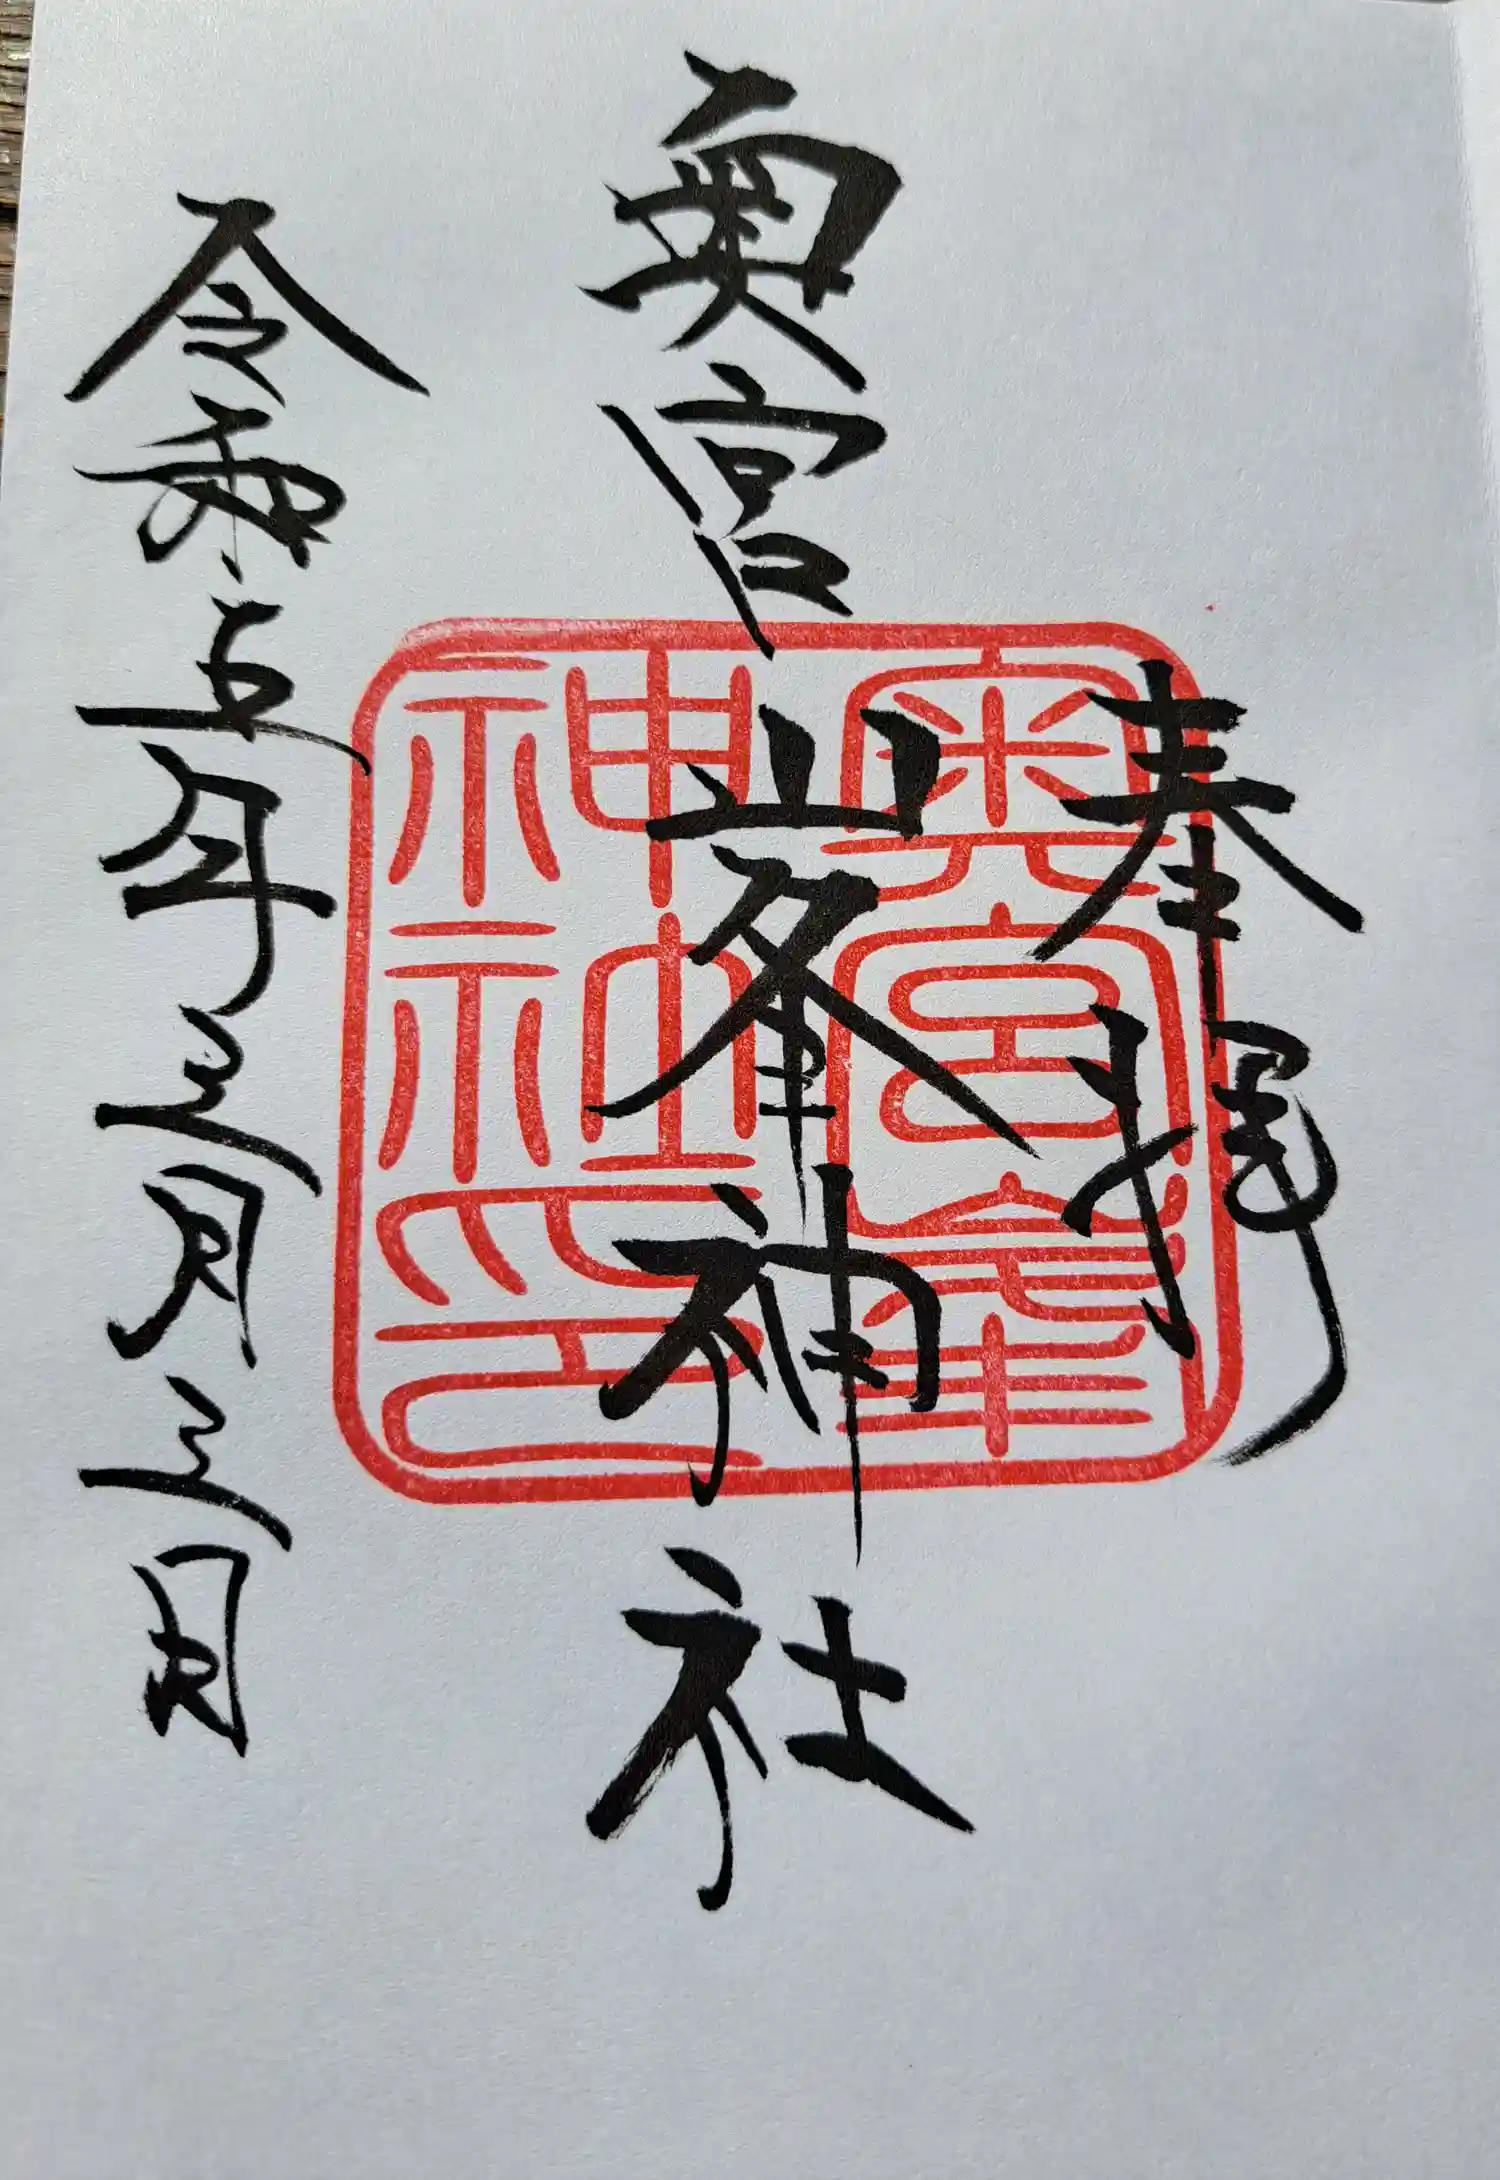 奉拝
奥宮峯神社
令和五年三月三日
奥宮峯
神社印